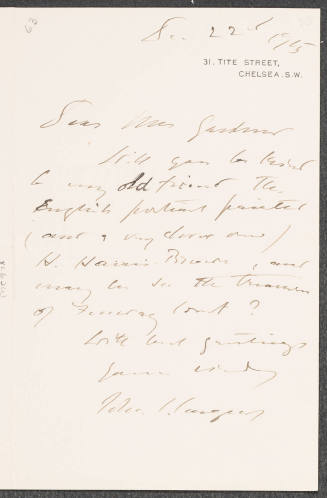 63
Dec 22d 1915
31, TITE STREET,
CHELSEA. S.W.
Dear Mrs Gardner
Will you be kind
to my old friend the
English portrait painter
(and a very clever one)
H. Harris Brown, and
may he see the treasures
of Fenway Court?
With best greetings
yours sincerely
John S. Sargent